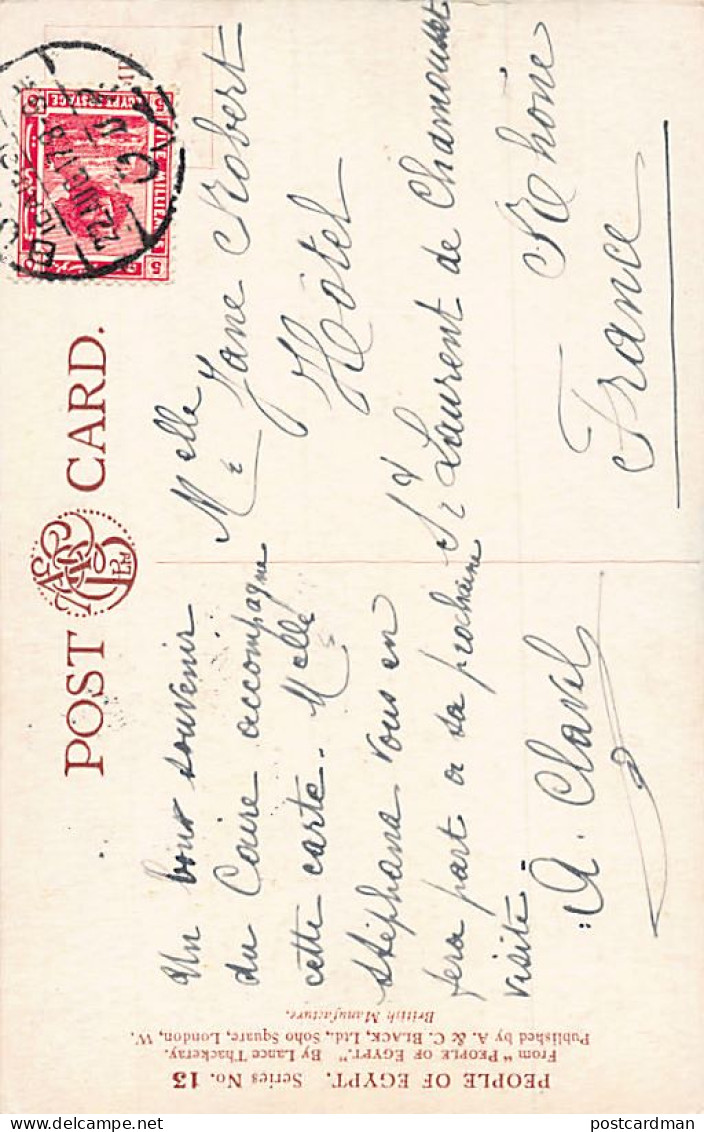 POST CARD.
Un bon souvenir
du Caire accompagne
cette carte. Melle
Stéphana vous en
fera part a sa prochaine
visite.
A. Clavel
Melle Jane Robert
Hôtel
St Laurent de Chamousset
Rhône
France
FIVE MILLIEMES
5
5
PEOPLE OF EGYPT. Series No. 13
From "PEOPLE OF EGYPT." By Lance Thackeray.
Published by A. & C. BLACK, Ltd., Soho Square, London, W.
British Manufacture.
postcardman